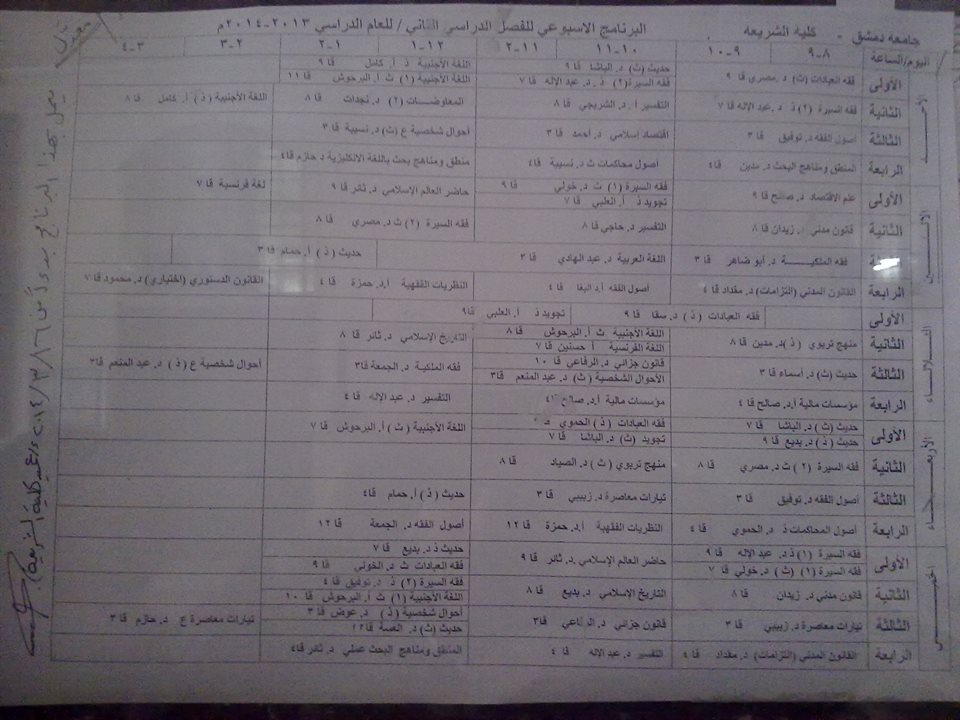 جامعة دمشق - كلية الشريعة . البرنامج الاسبوعي للفصل الدراسي الثاني / للعام الدراسي ٢٠١٣-٢٠١٤م
اليوم/الساعة ٨-٩ ٩-١٠ ١٠-١١ ١١-٢ ١٢-١ ١-٢ ٢-٣ ٣-٤
الأولى فقه العبادات (ث) د. مصري قا ٩ حديث (ث) د. الباشا قا ٩ اللغة الأجنبية ذ أ. كامل قا ٩
فقه السيرة (٢) ذ . د. عبد الاله قا ٧ اللغة الأجنبية (١) ث أ. البرحوش قا ١١
الثانية فقه السيرة (٢) ذ د. عبد الإله قا ٧ التفسير أ . د. الشربجي قا ٨ المعاوضات (٢) د. نجدات قا ٨ اللغة الأجنبية (ذ) أ. كامل قا ٨
الثالثة أصول الفقه د. توفيق قا ٣ اقتصاد إسلامي د. أحمد قا ٣ أحوال شخصية ع (ث) د. نسيبة قا ٣
الرابعة المنطق ومناهج البحث د. مدين قا ٤ أصول محاكمات ث د. نسيبة قا ٤ منطق ومناهج بحث باللغة الانكليزية د حازم قا ٤
الأولى علم الاقتصاد د. صالح قا ٩ فقه السيرة (١) ث د. خولي قا ٩ حاضر العالم الإسلامي د. ثائر قا ٩ لغة فرنسية قا ٧
تجويد ذ أ. العلبي قا ٧
الثانية قانون مدني أ. زيدان قا ٨ التفسير د. حاجي قا ٨ فقه السيرة (٢) ث د. مصري قا ٨
فقه الملكيـــة د. أبو ضاهر قا ٣ اللغة العربية د. عبد الهادي قا ٣ حديث (ذ) أ. حمام قا ٣
الرابعة القانون المدني (التزامات) د. مقداد قا ٤ أصول الفقه أ.د. البغا قا ٤ النظريات الفقهية أ.د. حمزة قا ٤ القانون الدستوري (اختياري) د. محمود قا ٧
الأولى فقه العبادات (ذ) د. سقا قا ٩ تجويد ذ أ. العلبي قا ٩
الثانية منهج تربوي (ذ) د. مدين قا ٨ اللغة الأجنبية ث أ. البرحوش قا ٨ التاريخ الإسلامي د. ثائر قا ٨
اللغة الفرنسية أ حسنين قا ٧
الثالثة حديث (ث) د. أسماء قا ٣ قانون جزائي د. الرفاعي قا ١٠ فقه الملكية د. الجمعة قا٣ أحوال شخصية ع (ذ) د. عبد المنعم قا٣
الأحوال الشخصية (ث) د. عبد المنعم قا٣
الرابعة مؤسسات مالية أ.د. صالح قا ٤ مؤسسات مالية أ.د. صالح التفسير د. عبد الإله قا ٤
الأولى حديث (ث) د. الباشا قا ٧ فقه العبادات (ذ) الحموي اللغة الأجنبية (ث) أ. البرحوش قا ٧
حديث (ذ) د. بديع قا ٩ تجويد (ث) د. الباشا قا ٧
الثانية فقه السيرة (٢) ث د. مصري قا ٨ منهج تربوي (ث) د. الصياد قا ٨
الثالثة أصول الفقه د. توفيق قا ٣ تيارات معاصرة د. زبيبي قا ٣ حديث (ذ) أ. حمام قا٤
الرابعة أصول المحاكمات ذ د. الحموي قا ٤ النظريات الفقهية أ.د. حمزة قا ١٢ أصول الفقه د. الجمعة قا ١٢
الأولى فقه السيرة (١) ذ د. عبد الإله قا ٩ حاضر العالم الإسلامي د. ثائر قا ٩ حديث ذ د. بديع قا ٧
فقه السيرة (١) (ث) د. خولي قا ٧ فقه العبادات ث د. الخولي قا ٩
الثانية قانون مدني د. زيدان قا ٨ التاريخ الإسلامي د. بديع قا ٨ فقه السيرة (٢) ذ د. توفيق قا ٤
اللغة الأجنبية (١) ث أ. البرحوش قا ١٠
الثالثة تيارات معاصرة د. زبيبي قا ٣ قانون جزائي د. الرفاعي قا٣ أحوال شخصية (ذ) د. عوض قا ٣ تيارات معاصرة ع د. حازم قا ٣
حديث (ث) د. العصة قا ١٢
الرابعة القانون المدني (التزامات) د. مقداد قا ٤ التفسير د. عبد الاله قا ٤ المنطق ومناهج البحث عملي د. ثائر قا٤
يعمل بهذا البرنامج بدءاً من ٢٠١٤/٣/١٦ عميد كلية الشريعة